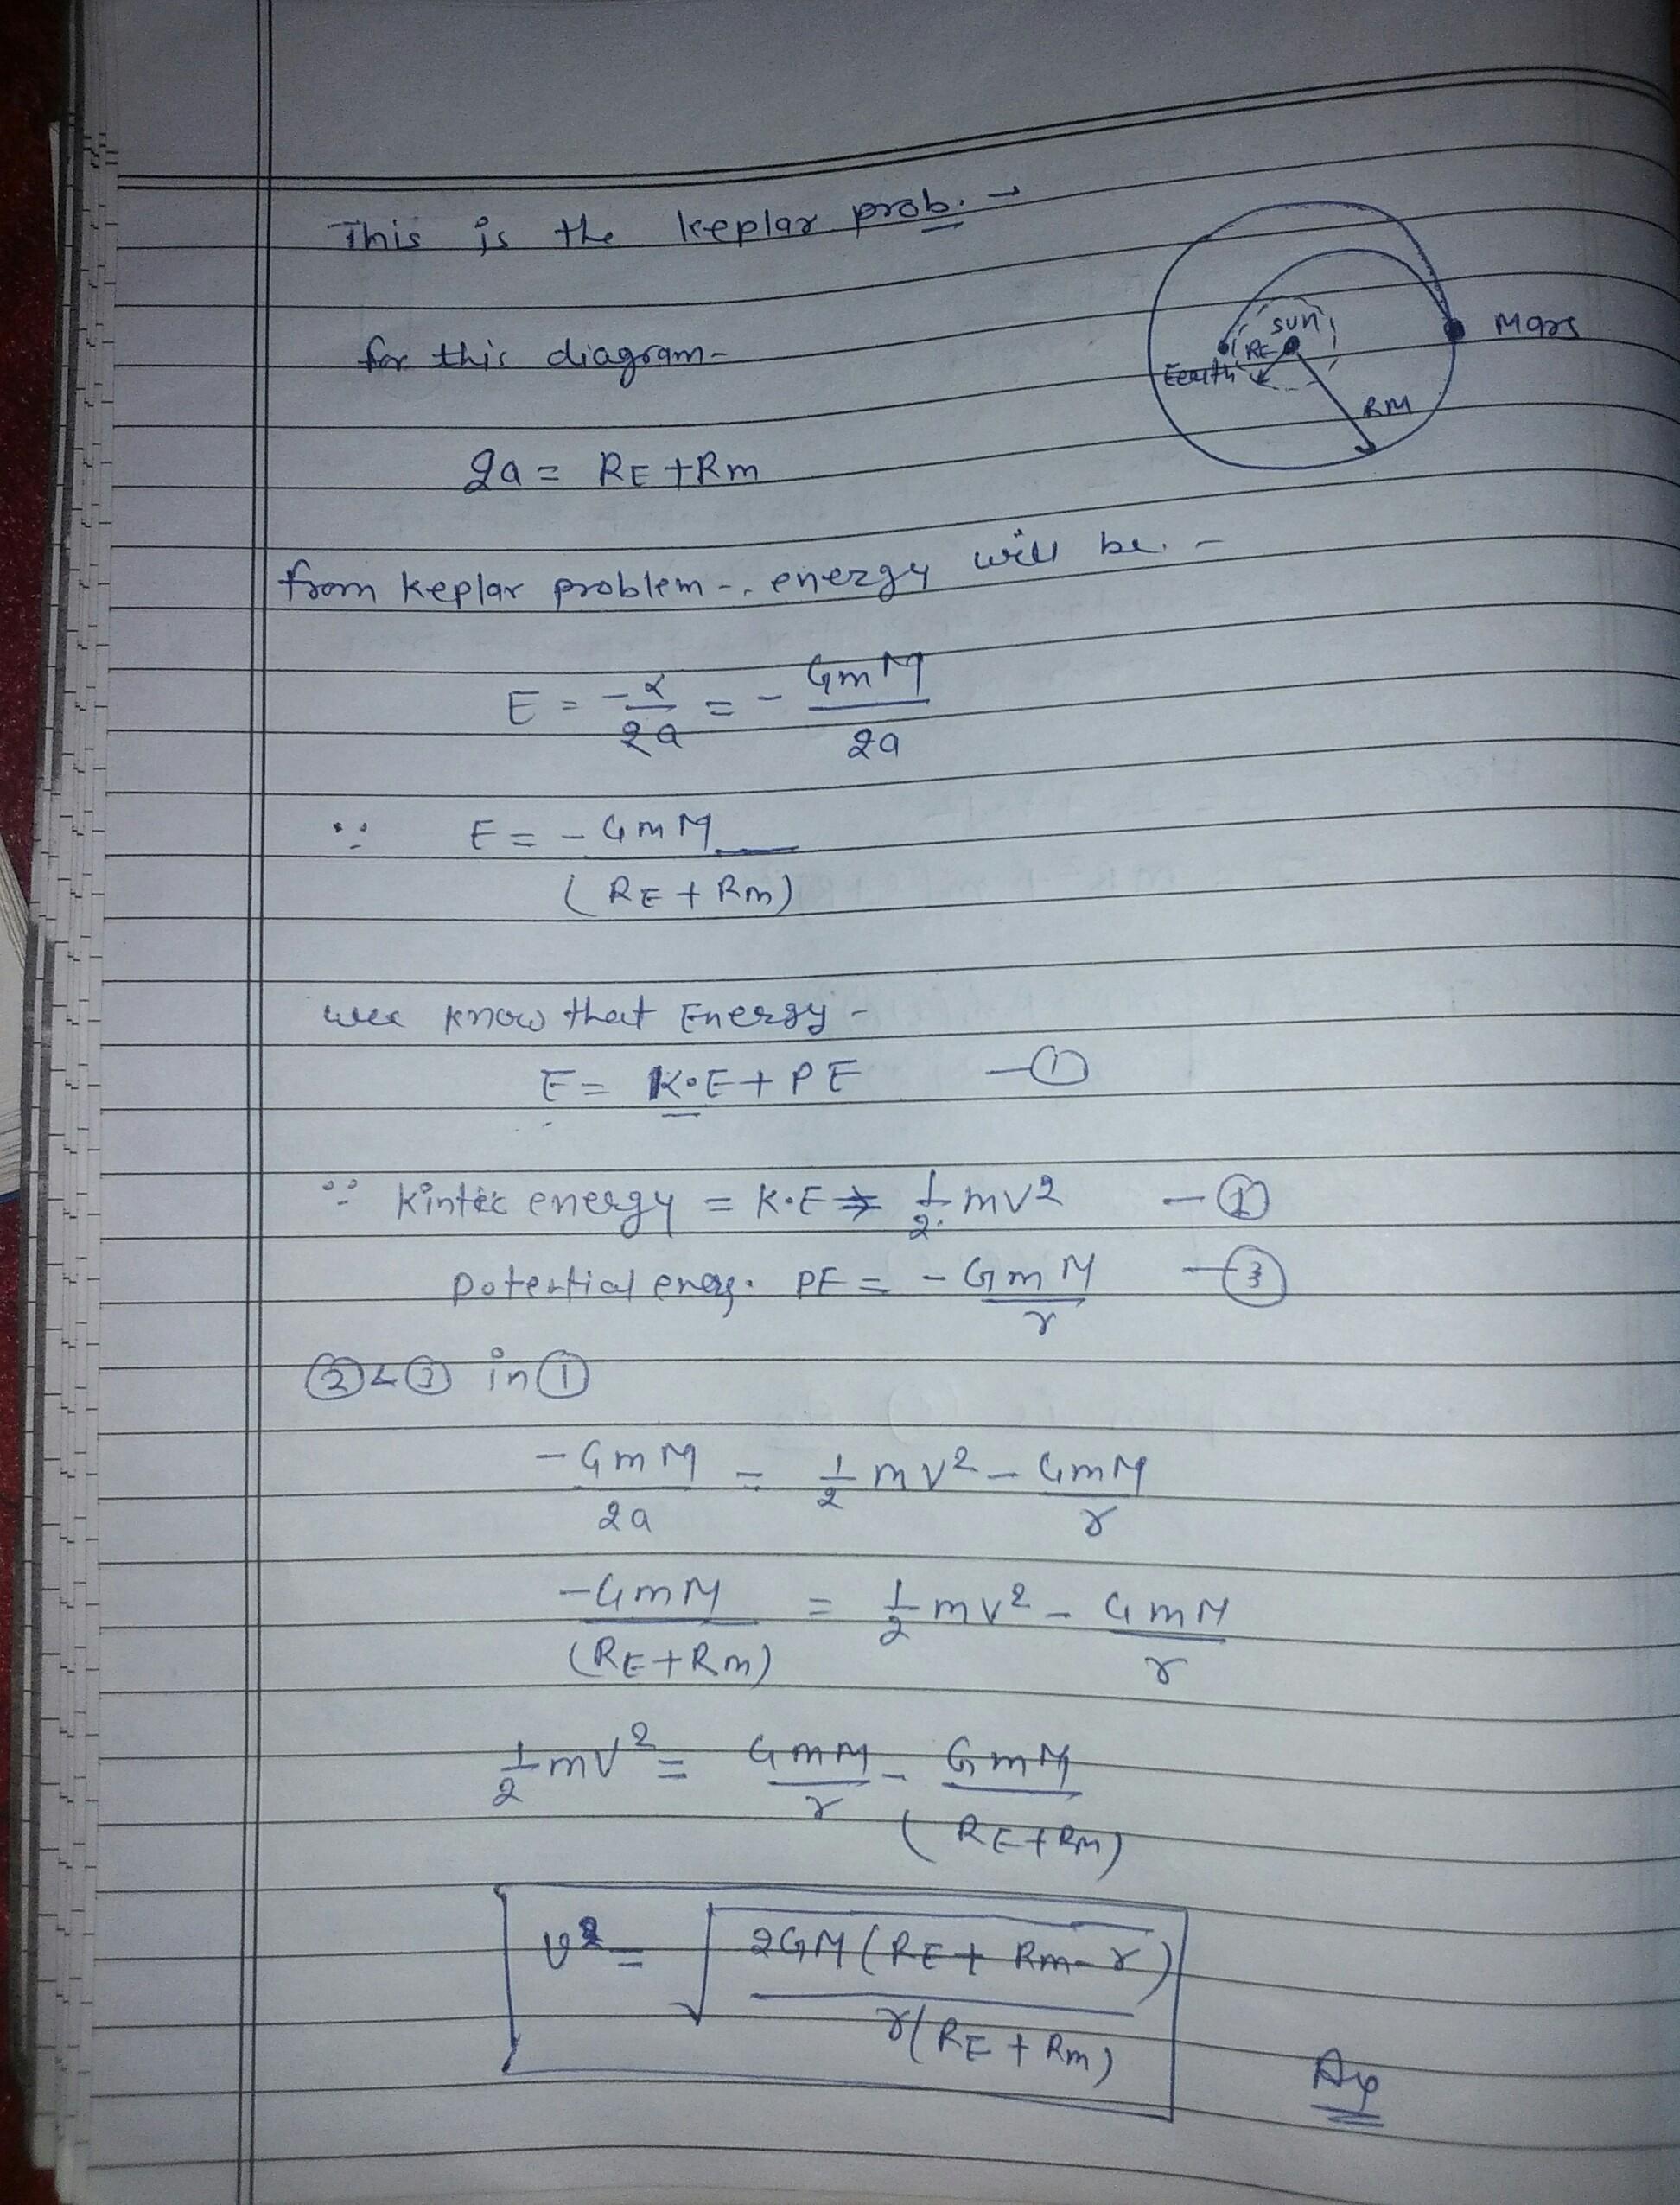 This is the keplar prob. →
sun
Mars
RE
Earth
RM
for this diagram-
2a = RE + Rm
from keplar problem -. energy will be. -
E = -α/2a = - GmM/2a
∵ E = - GmM/(RE + Rm)
wee know that Energy -
E = K.E + PE —①
∵ kintic energy = K.E ⇒ 1/2 mv² —②
Potential energ. PE = - GmM/r —③
② & ③ in ①
-GmM/2a = 1/2 mv² - GmM/r
-GmM/(RE + Rm) = 1/2 mv² - GmM/r
1/2 mv² = GmM/r - GmM/(RE + Rm)
v² = √(2GM(RE + Rm - r)/r(RE + Rm))